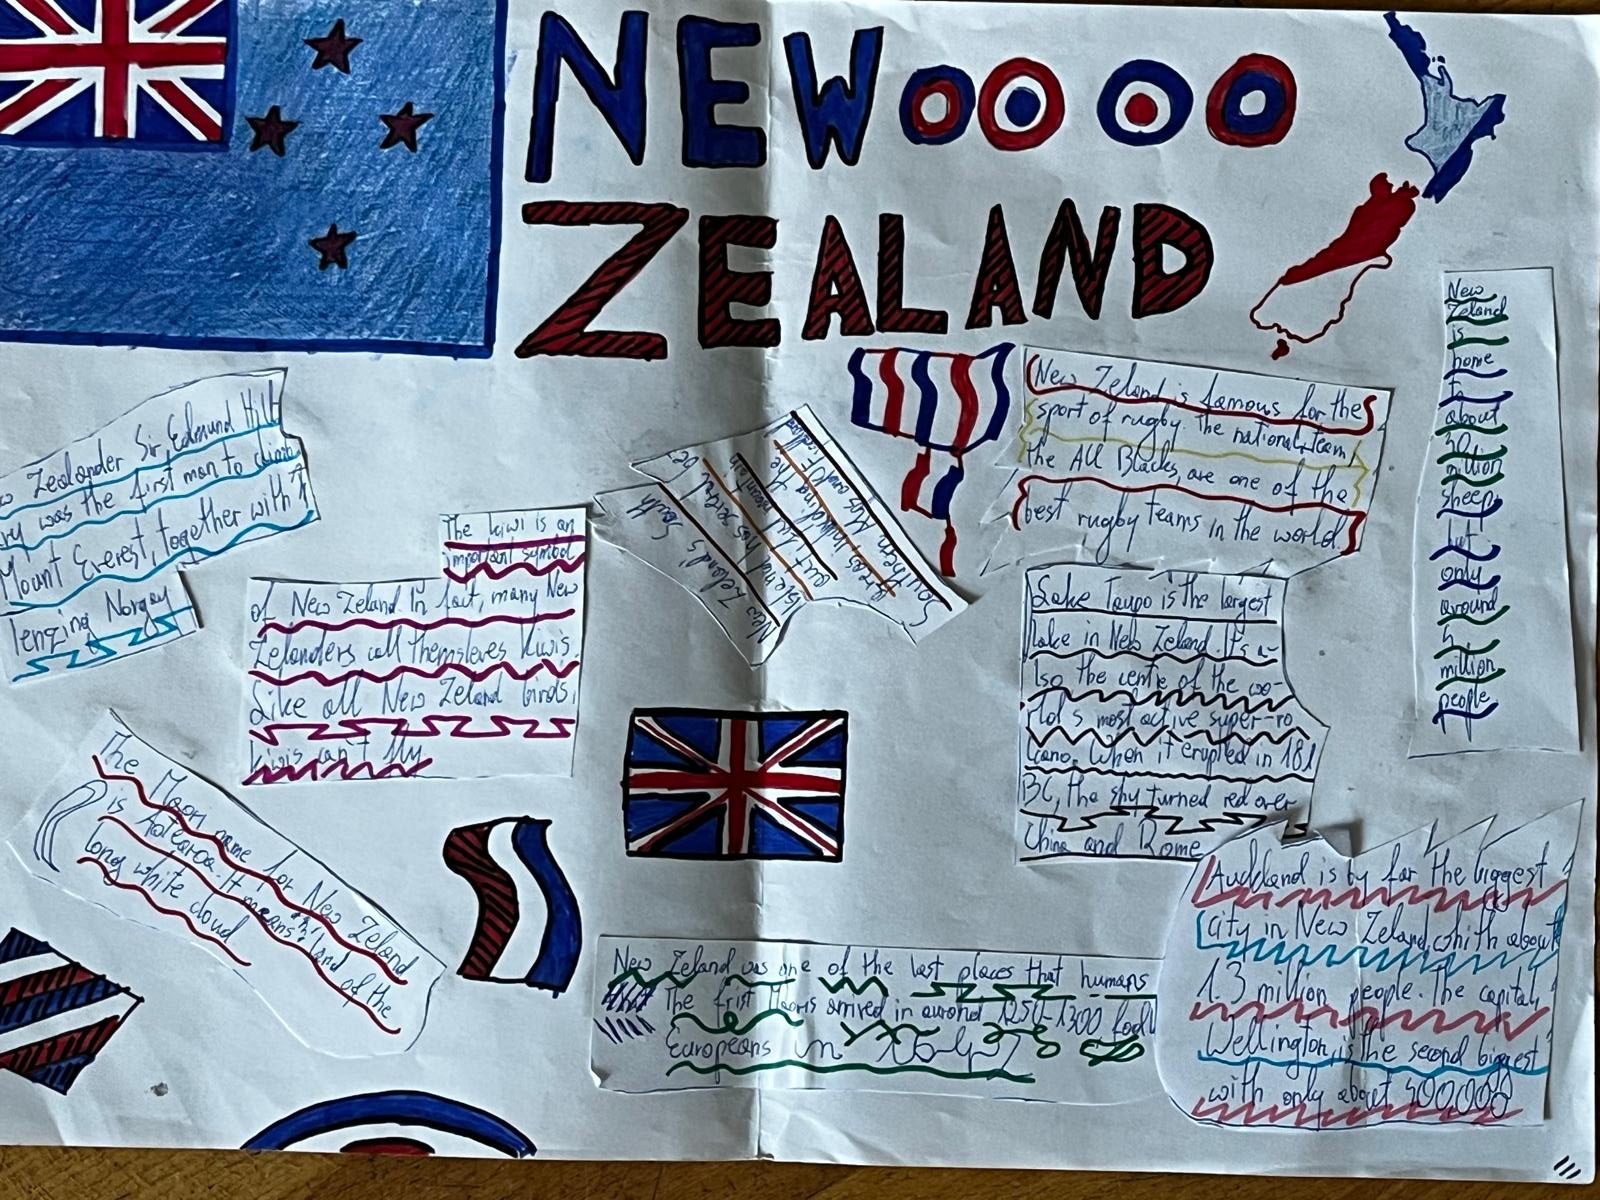 NEW
ZEALAND
Zealander Sir Edmund Hill
ry was the first man to climb
Mount Everest, together with
Tenzing Norgay
The kiwi is an
important symbol
of New Zeland. In fact, many New
Zelanders call themsleves kiwis.
Like all New Zeland birds,
kiwis can't fly
The Maori name for New Zeland
is Aotearoa. It means: land of the
long white cloud
New Zeland's South
Island has several be
Southern Alps
New Zeland is famous for the
sport of rugby. The national team,
the All Blacks, are one of the
best rugby teams in the world.
New
Zeland
is
home
to
about
30
million
sheep,
but
only
around
million
people
Lake Taupo is the largest
lake in New Zeland. It's a-
lso the centre of the wo-
rld's most active super-
cano. When it erupted in 181
BC, the sky turned red over
China and Rome
Auckland is by far the biggest
city in New Zeland, whith about
1.3 million people. The capital,
Wellington, is the second biggest
with only about 400,000
New Zeland was one of the last places that humans
The frist Maoris arrived in aurond 1250-1300
Europeans in